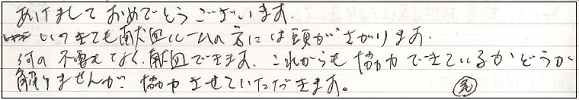 あけまして おめでとうございます。
いつきても献血ルームの方には頭がさがります。
何の不安もなく、献血できます。これからも協力できているかどうか
解りませんが、協力させていただきます。